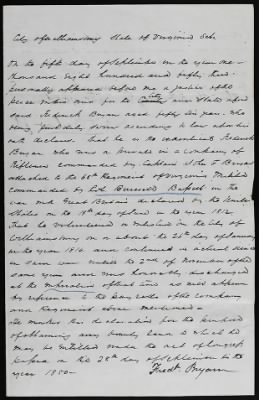 City of Williamsburg State of Virginia Sct.
On the fifth day of September in the year one
thousand eight hundred and fifty three
personally appeared before me a Justice of the
peace within and for the City and State afore
said Frederick Bryan aged fifty six years who
being first duly sworn according to law
doth declare. That he is the identical Frederick
Bryan who was a private in a company of
Riflemen commanded by Captain John F Bryan
attached to the 68th Regiment of Virginia Militia
commanded by Col. Burwell Bassett in the
war with Great Britain declared by the United
States on the 18th day of June in the year 1812.
That he volunteered or enlisted in the City of
Williamsburg on or about the day of
in the year 1814 and continued in actual service
in said war until the 2nd of November of the
same year and was honorably discharged
at the expiration of that time as will appear
by reference to the pay rolls of the company
and Regiment above mentioned.
He makes this declaration for the purpose
of obtaining any bounty land to which he
may be entitled under the act of Congress
passed on the 28th day of September in the
year 1850—
Fredk. Bryan